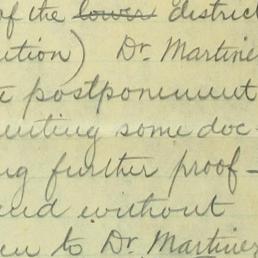 of the lower district
ution) Dr. Martine
postponement
enting some doc-
ng further proof-
and without
en to Dr. Martinez